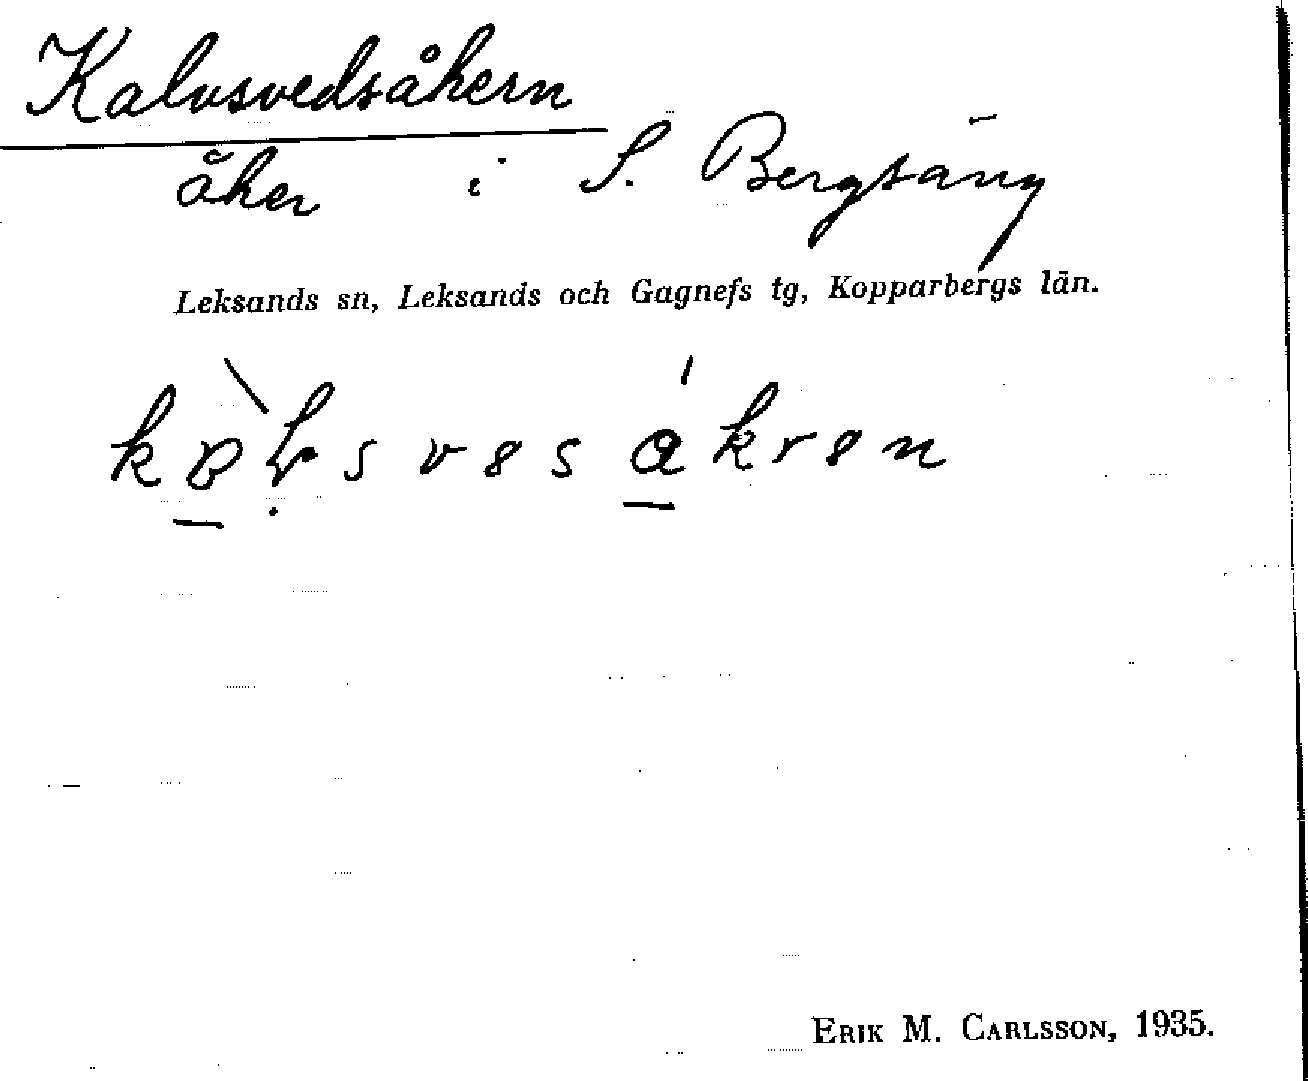 Kalvsvedsåkern
åker i S. Bergsäng
Leksands sn, Leksands och Gagnefs tg, Kopparbergs län.
ERIK M. CARLSSON, 1935.